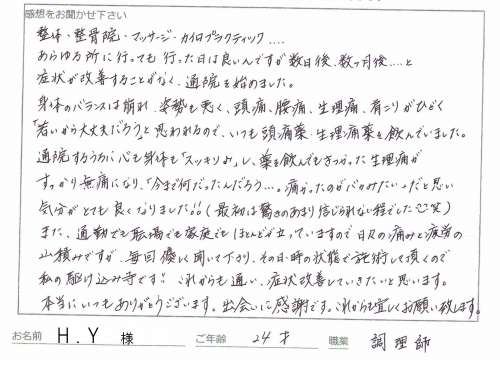 感想をお聞かせ下さい
整体・整骨院・マッサージ・カイロプラクティック‥‥
あらゆる所に行っても行った日は良いんですが数日後、数ヶ月後‥‥と
症状が改善することがなく、通院を始めました。
身体のバランスは崩れ、姿勢も悪く、頭痛、腰痛、生理痛、肩こりがひどく
「若いから大丈夫だろう」と思われるので、いつも頭痛薬、生理痛薬を飲んでいました。
通院するうちに心も身体も「スッキリ♪」し、薬を飲んでもきつかった生理痛が
すっかり無痛になり、「今まで何だったんだろう‥‥。痛かったのがバカみたい」だと思い
気分がとても良くなりました!!(最初は驚きのあまり信じられない程でした 笑)
また、通勤でも職場でも家庭でもほとんどが立っていますので日々の痛みと疲労の
山積みですが、毎回優しく聞いて下さり、その日・時の状態で施術して頂くので
私の駆け込み寺です!! これからも通い、症状改善していきたいと思います。
本当にいつもありがとうございます。出会いに感謝です。これからも宜しくお願い致します。
お名前 H.Y 様 ご年齢 24才 職業 調理師